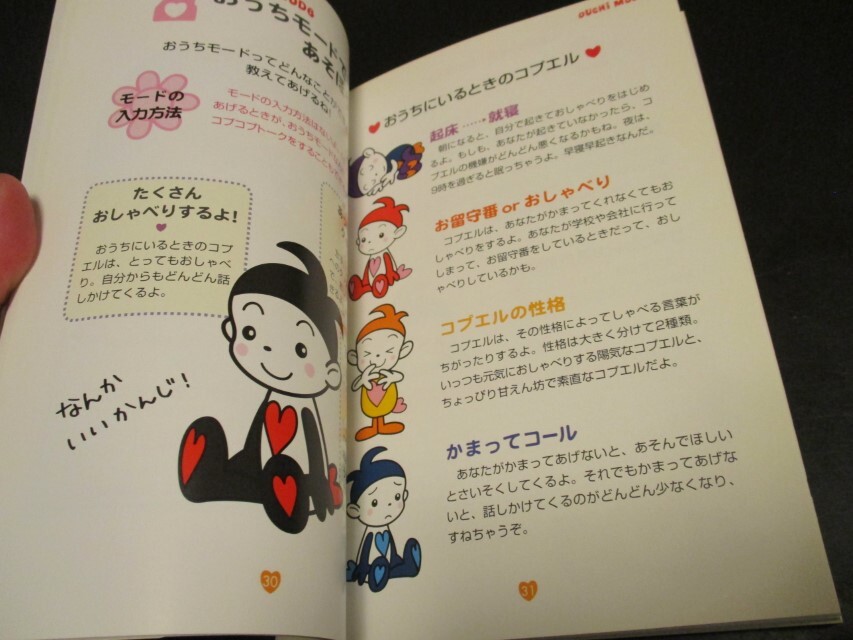 おうちモードで
あそぼ
おうちモードってどんなことが
教えてあげるね!
モードの
入力方法
モードの入力方法は
あげるときが、おうちモー
コプコプトークをすることも
たくさん
おしゃべりするよ!
おうちにいるときのコプ
エルは、とってもおしゃべ
り。自分からもどんどん話
しかけてくるよ。
なんか
いいかんじ!
30
OUCHI MO
おうちにいるときのコプエル
起床……→就寝
朝になると、自分で起きておしゃべりをはじめ
るよ。もしも、あなたが起きていなかったら、コ
プエルの機嫌がどんどん悪くなるかもね。夜は、
9時を過ぎると眠っちゃうよ。早寝早起きなんだ。
お留守番 or おしゃべり
コプエルは、あなたがかまってくれなくてもお
しゃべりをするよ。あなたが学校や会社に行って
しまって、お留守番をしているときだって、おし
ゃべりしているかも。
コプエルの性格
コプエルは、その性格によってしゃべる言葉が
ちがったりするよ。性格は大きく分けて2種類。
いっつも元気におしゃべりする陽気なコプエルと、
ちょっぴり甘えん坊で素直なコプエルだよ。
かまってコール
あなたがかまってあげないと、あそんでほしい
とさいそくしてくるよ。それでもかまってあげな
いと、話しかけてくるのがどんどん少なくなり、
すねちゃうぞ。
31